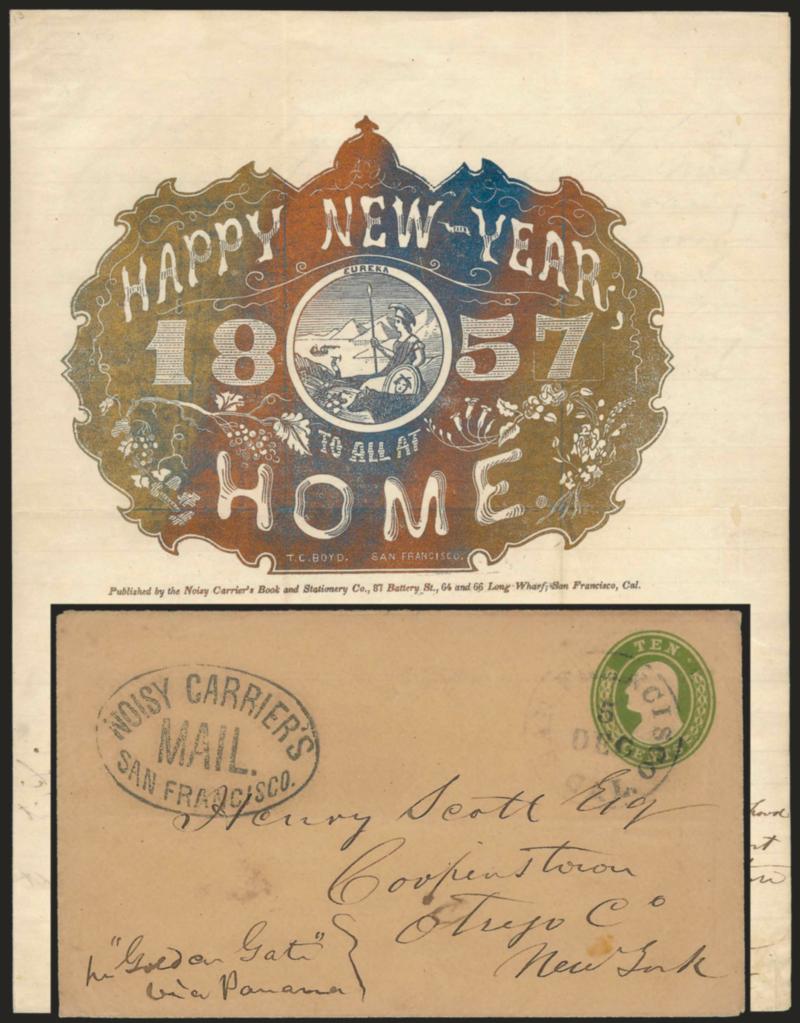 HAPPY NEW-YEAR,
EUREKA
1857
TO ALL AT
HOME.
T. C. BOYD. SAN FRANCISCO.
Published by the Noisy Carrier's Book and Stationery Co., 87 Battery St., 64 and 66 Long-Wharf, San Francisco, Cal.
NOISY CARRIER'S
MAIL.
SAN FRANCISCO.
TEN
CENTS
SAN FRANCISCO
5
DEC
CAL.
Henry Scott Esq
Cooperstown
Otsego Co
New York
pr "Golden Gate"
via Panama